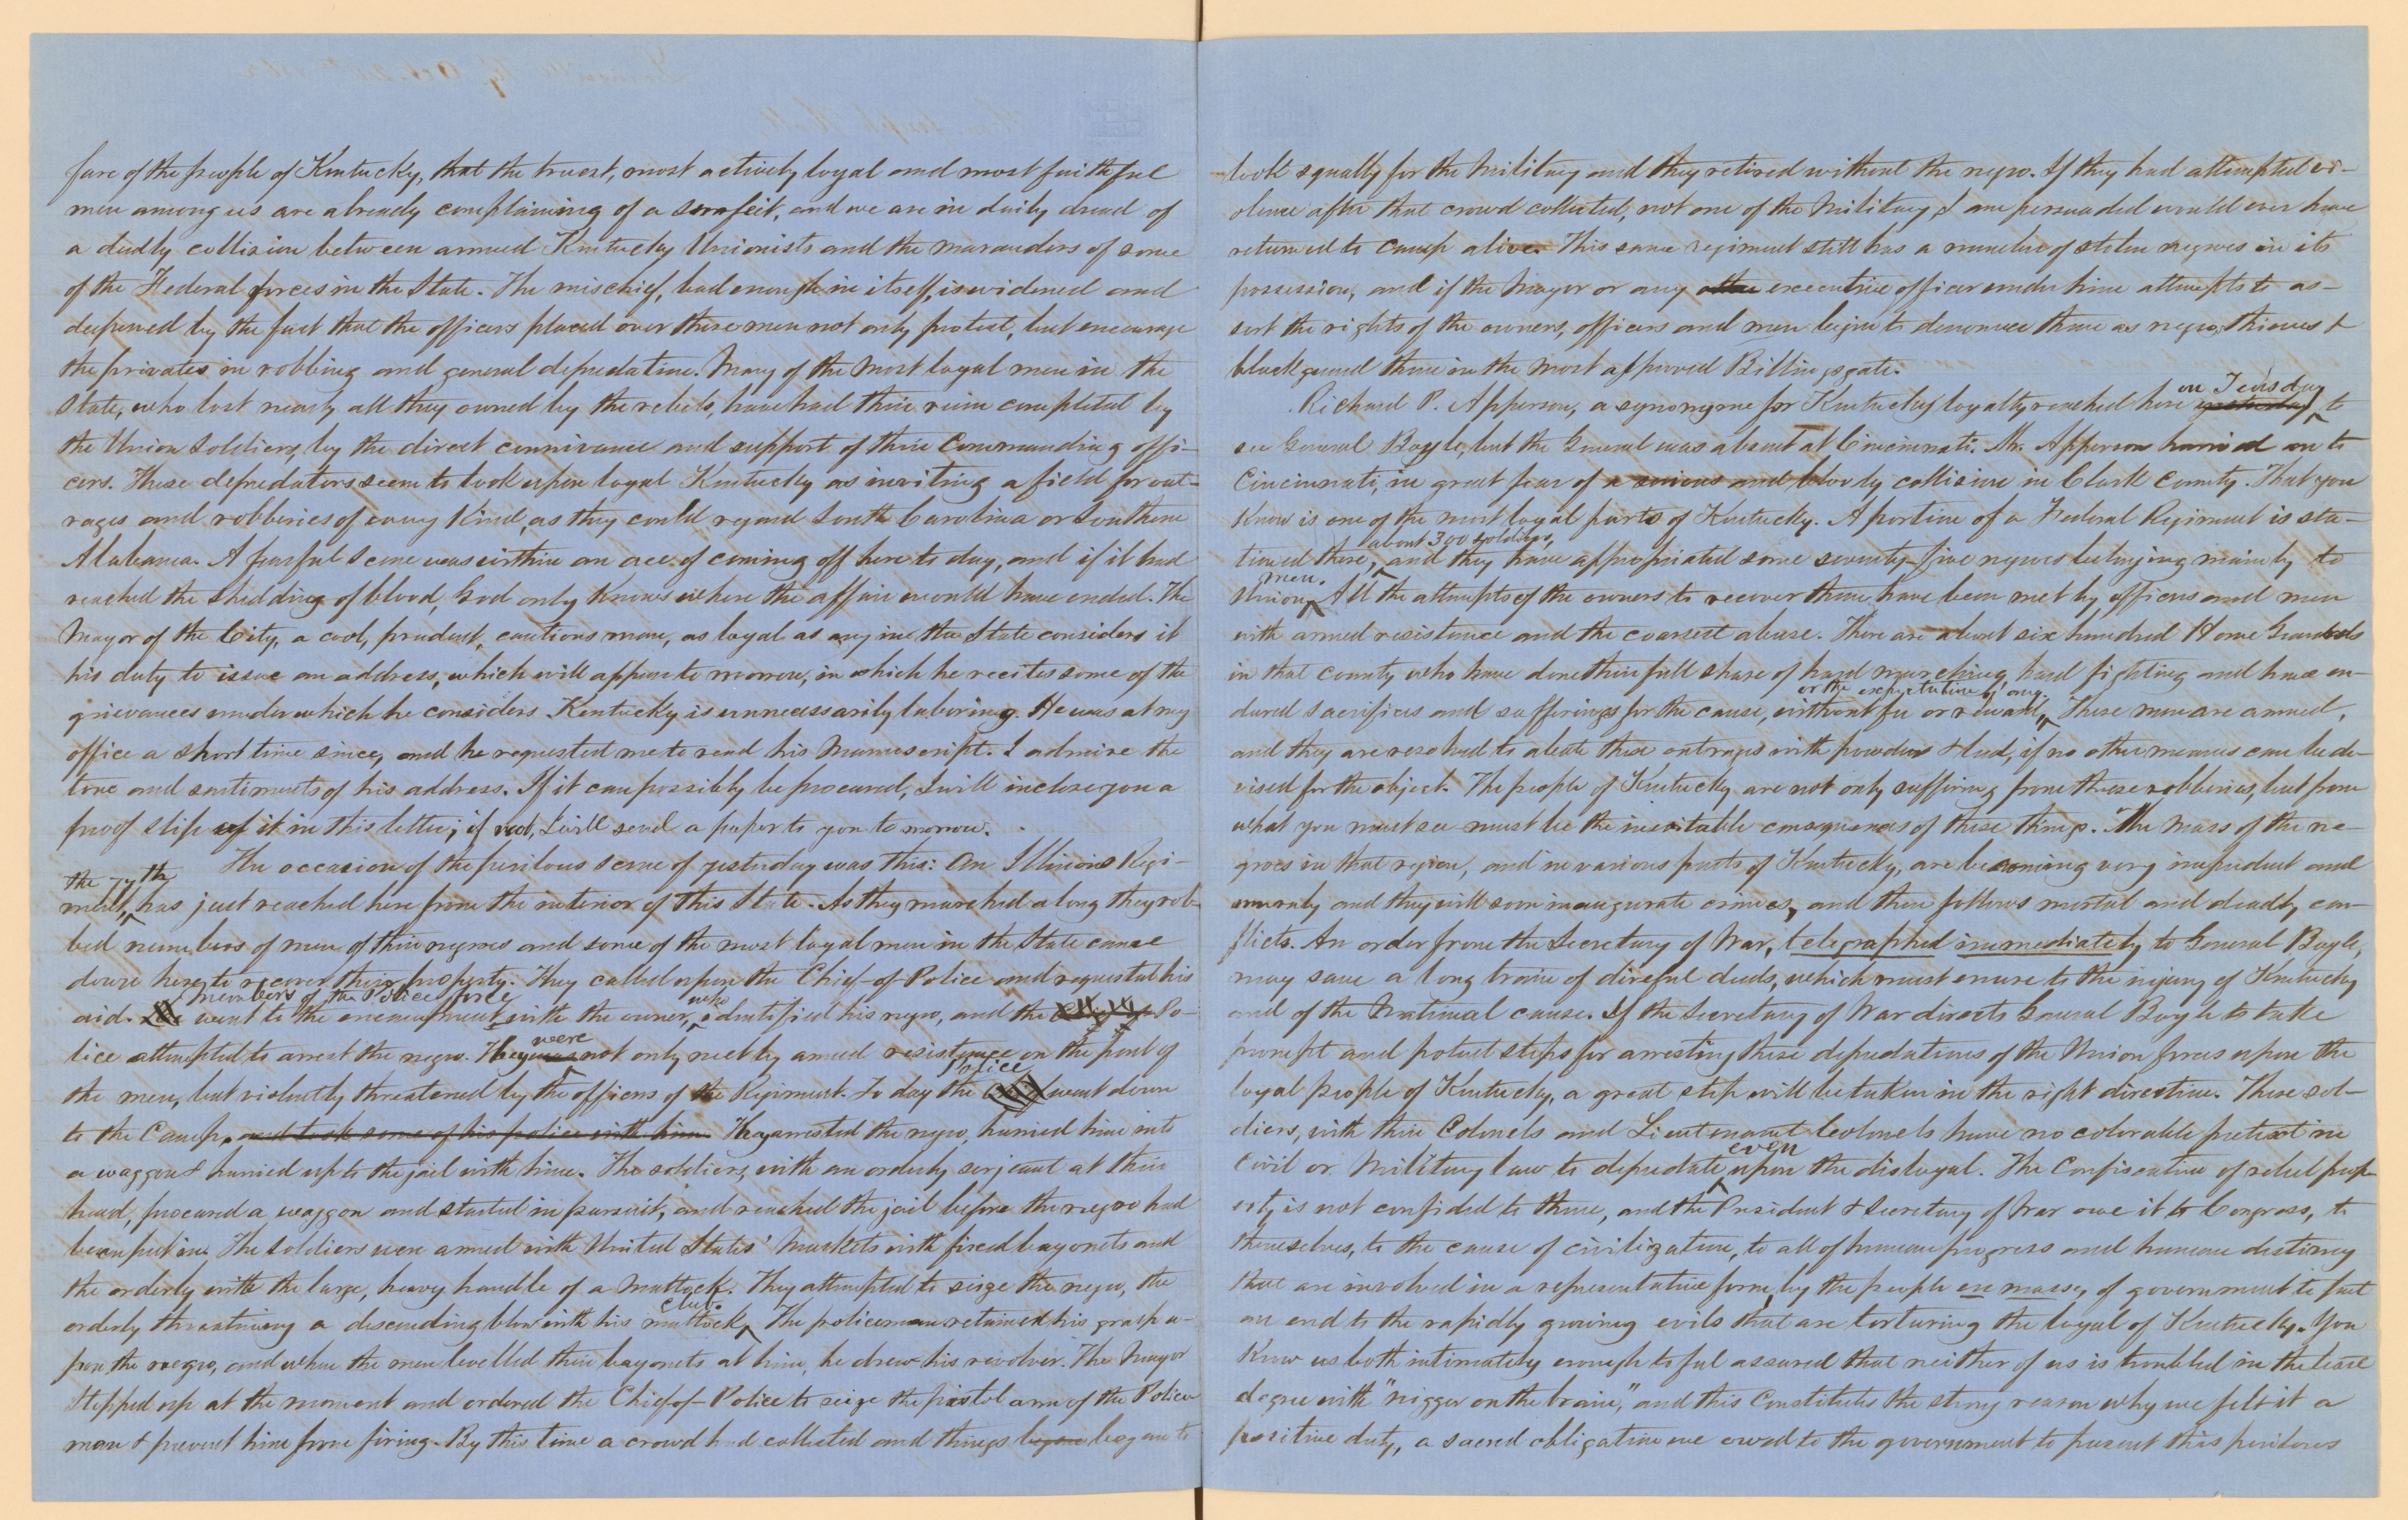 fare of the people of Kentucky, that the truest, most actively loyal and most faithful
men among us are already complaining of a surfeit, and we are in daily dread of
a deadly collision between armed Kentucky Unionists and the marauders of some
of the Federal forces in the State. The mischief, bad enough in itself, is widened and
deepened by the fact that the officers placed over these men not only protect, but encourage
the privates in robbing and general depredation. Many of the most loyal men in the
State, who lost nearly all they owned by the rebels, have had their ruin completed by
the Union soldiers, by the direct connivance and support of their Commanding offi-
cers. These depredators seem to look upon loyal Kentucky as inviting a field for out-
rages and robberies of every kind, as they could regard South Carolina or Southern
Alabama. A fearful scene was within an ace of coming off here to day, and if it had
reached the shedding of blood, God only knows where the affair would have ended. The
Mayor of the City, a cool, prudent, cautious man, as loyal as any in the State considers it
his duty to issue an address, which will appear to morrow, in which he recites some of the
grievances under which he considers Kentucky is unnecessarily laboring. He was at my
office a short time since, and he requested me to read his Manuscript. I admire the
tone and sentiments of his address. If it can possibly be procured, I will inclose you a
proof slip of it in this letter; if not, I will send a paper to you to morrow.
The occasion of the perilous scene of yesterday was this: An Illinois Regi-
the 77th
ment, has just reached here from the interior of this State. As they marched along they rob-
bed numbers of men of their negroes and some of the most loyal men in the State came
down here to recover their property. They called upon the Chief-of-Police and requested his
members of the Police force
aid. went to the encampment with the owner, who identified his negro, and the Po-
lice attempted to arrest the negro. They was were not only met by armed resistance on the part of
the men, but violently threatened by the officers of the Regiment. To day the Police went down
to the Camp, and took some of his police with him. They arrested the negro, hurried him into
a waggon & hurried up to the jail with him. The soldiers, with an orderly serjeant at their
head, procured a waggon and started in pursuit, and reached the jail before the negro had
been put in. The soldiers were armed with United States' Muskets with fixed bayonets and
the orderly with the large, heavy handle of a Mattock. They attempted to seize the negro, the
orderly threatening a descending blow with his mattock club. The policeman retained his grasp u-
pon the negro, and when the men levelled their bayonets at him, he drew his revolver. The Mayor
stepped up at the moment and ordered the Chief-of-Police to seize the pistol arm of the Police
man & prevent him from firing. By this time a crowd had collected and things began began to
look squally for the Military and they retired without the negro. If they had attempted vi-
olence after that crowd collected, not one of the Military I am persuaded would ever have
returned to camp alive. This same regiment still has a number of stolen negroes in its
possession, and if the Mayor or any other executive officer under him attempts to as-
sert the rights of the owners, officers and men begin to denounce them as negro thieves &
blackguard them in the most approved Billingsgate.
Richard P. Apperson, a synonyme for Kentucky loyalty reached here yesterday on Tuesday to
see General Boyle, but the General was absent at Cincinnati. Mr. Apperson hurried on to
Cincinnati, in great fear of a serious and bloody collision in Clark County. That you
know is one of the most loyal parts of Kentucky. A portion of a Federal Regiment is sta-
tioned there, about 300 soldiers, and they have appropriated some seventy-five negroes belonging mainly to
Union men. All the attempts of the owners to recover them have been met by officers and men
with armed resistance and the coarsest abuse. There are about six hundred Home Guards
in that county who have done their full share of hard marching, hard fighting and have en-
dured sacrifices and sufferings for the cause, without fee or reward, or the expectation of any. These men are armed,
and they are resolved to abate these outrages with powder & lead, if no other means can be de-
vised for the object. The people of Kentucky are not only suffering from these robberies, but from
what you must see must be the inevitable consequences of these things. The mass of the ne-
groes in that region, and in various parts of Kentucky, are becoming very impudent and
unruly and they will soon inaugurate crimes, and then follows mortal and deadly con-
flicts. An order from the Secretary of War, telegraphed immediately to General Boyle,
may save a long train of direful deeds, which must enure to the injury of Kentucky
and of the National cause. If the Secretary of War directs General Boyle to take
prompt and potent steps for arresting these depredations of the Union forces upon the
loyal people of Kentucky, a great step will be taken in the right direction. These sol-
diers, with their Colonels and Lieutenant Colonels have no colorable pretext in
civil or Military law to depredate even upon the disloyal. The Confiscation of rebel prop-
erty is not confided to them, and the President & Secretary of War owe it to Congress, to
themselves, to the cause of civilization, to all of human progress and human destiny
that are involved in a representative form, by the people en masse, of government to put
an end to the rapidly growing evils that are torturing the loyal of Kentucky. You
know us both intimately enough to feel assured that neither of us is troubled in the least
degree with "nigger on the brain," and this constitutes the strong reason why we felt it a
positive duty, a sacred obligation we owed to the government to present this perilous